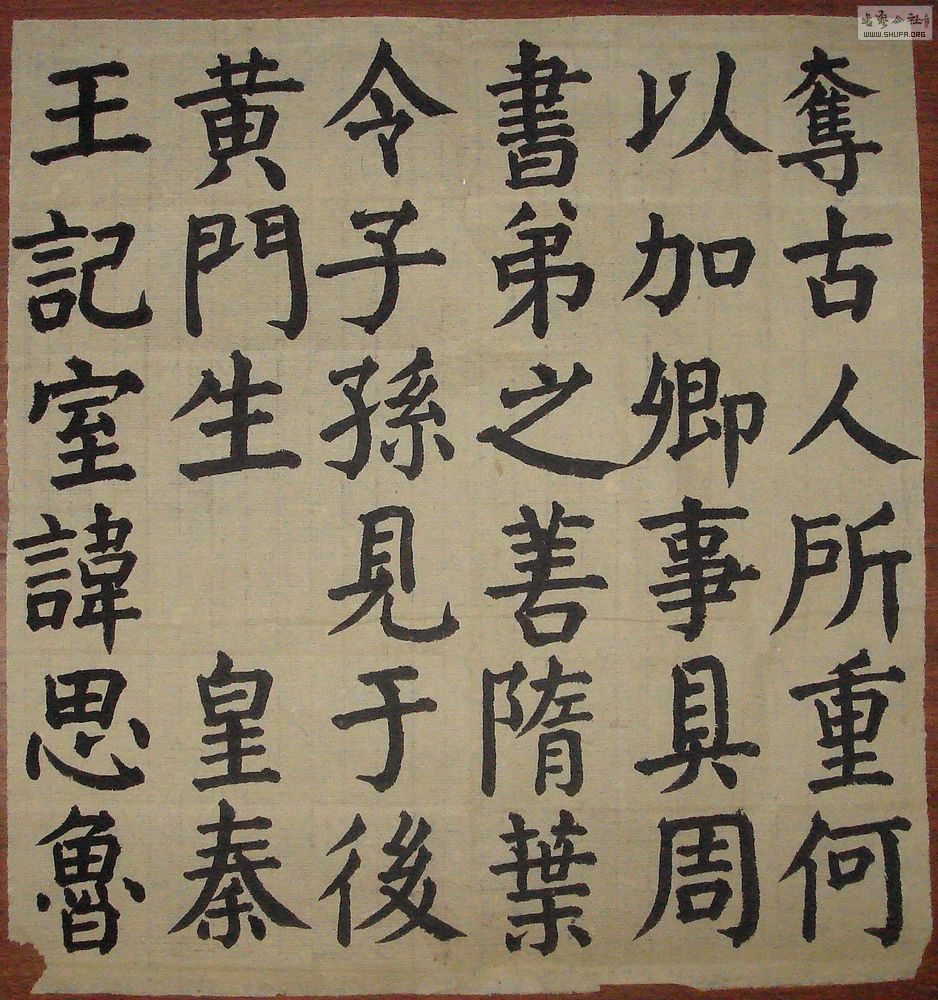 奪古人所重何
以加卿事具周
書弟之善隋葉
令子孫見于後
黄門生 皇秦
王記室諱思魯
WWW.SHUFA.ORG